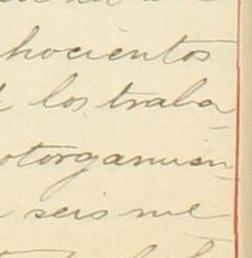 hocientos
los traba
otorgamien-
seis mil